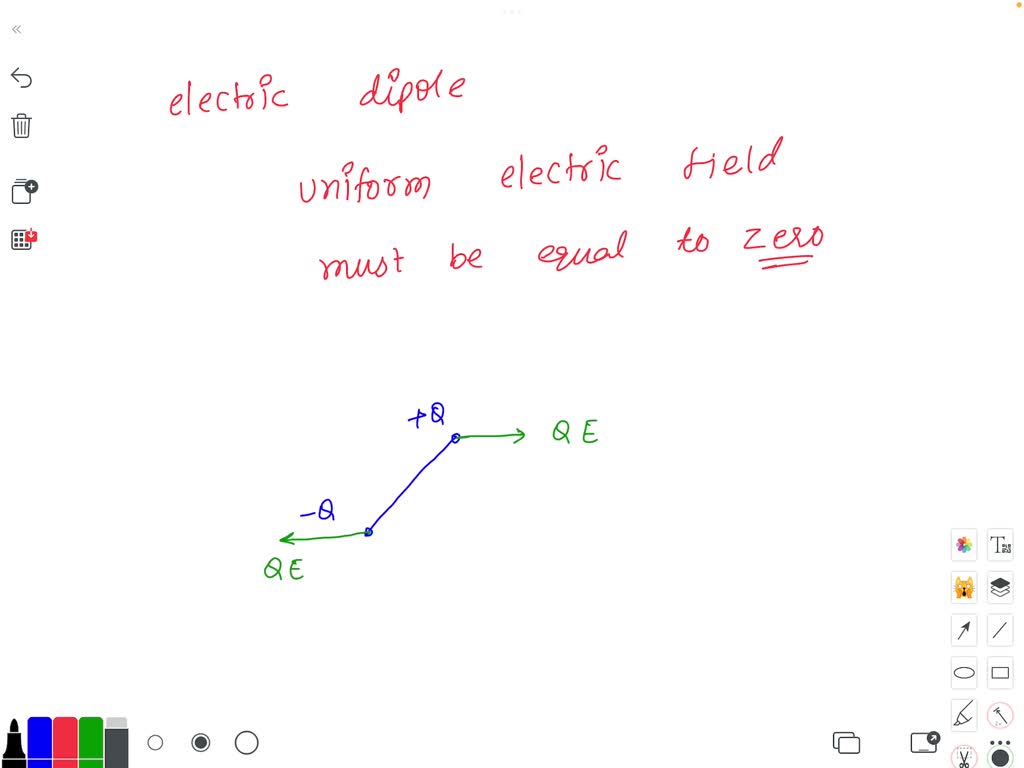 electric dipole
uniform electric field
must be equal to zero
+Q
QE
-Q
QE